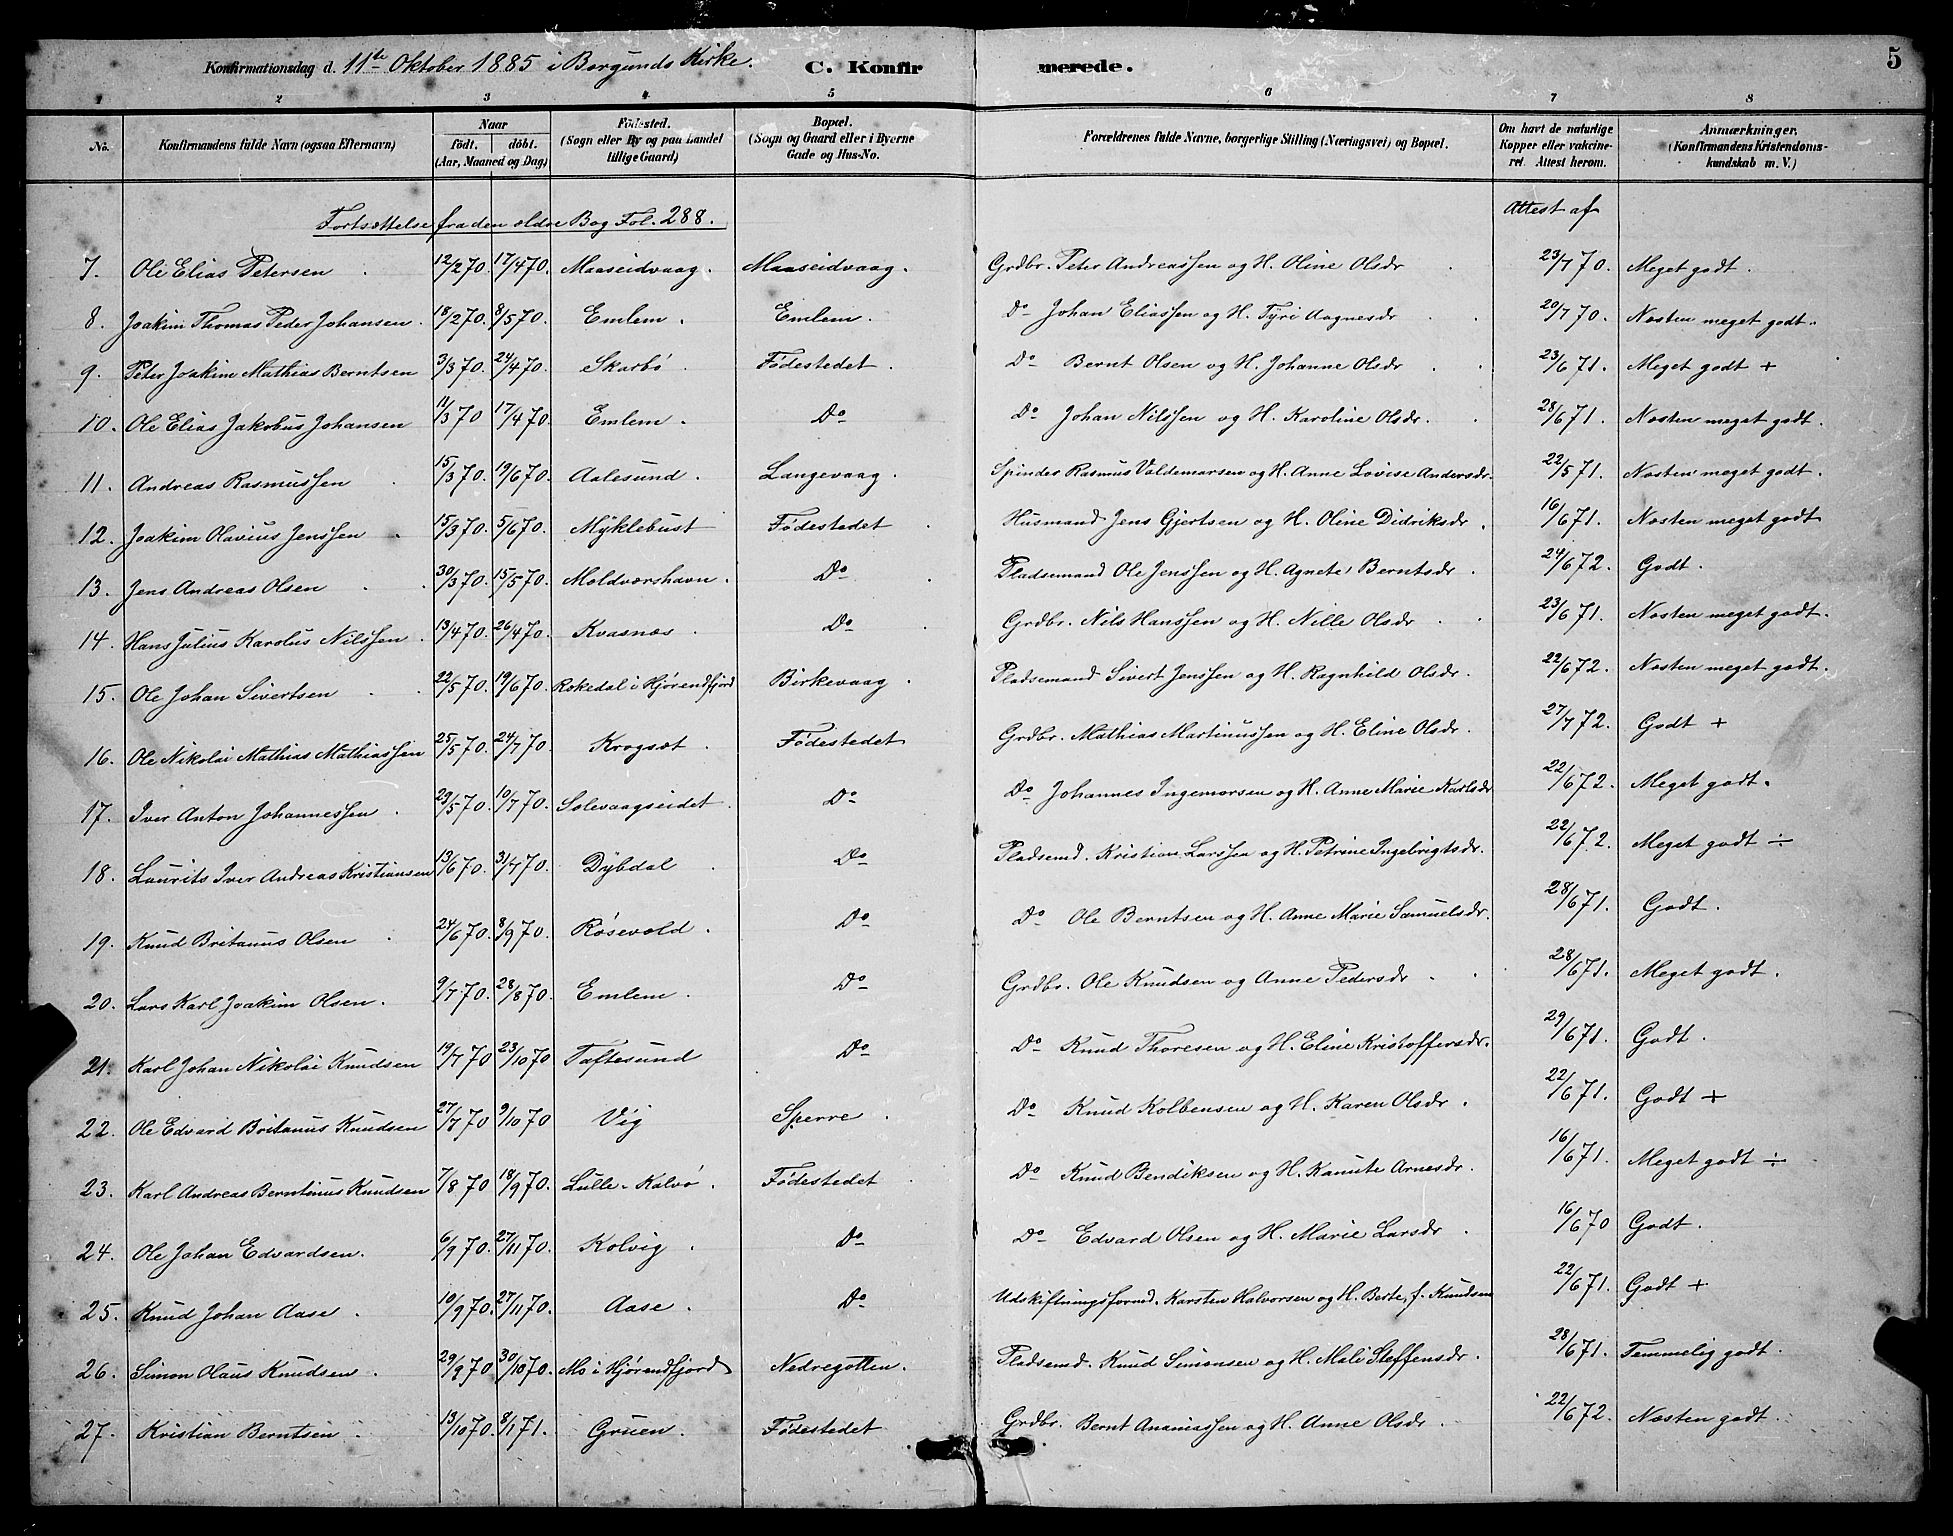 Konfirmationsdag d. 11te Oktober 1885 i Borgunds Kirke. C. Konfirmerede. 5
1 2 3 4 5 6 7 8
No. Konfirmandens fulde Navn (ogsaa Efternavn) Naar födt. döbt. (Aar, Maaned og Dag) Födested. (Sogn eller By og paa Landet tillige Gaard) Bopæl. (Sogn og Gaard eller i Byerne Gade og Hus-No. Forældrenes fulde Navne, borgerlige Stilling (Næringsvei) og Bopæl. Om havt de naturlige Kopper eller vakcineret. Attest herom. Anmærkninger. (Konfirmandens Kristendomskundskab m. V.)
Fortsættelse fra den ældre Bog Fol. 288. Attest af
7. Ole Elias Petersen 12/2 70. 17/4 70. Maaseidvaag. Maaseidvaag. Grdbr. Peter Andreassen og H. Oline Olsdr 23/7 70. Meget godt.
8. Joakim Thomas Peder Johansen. 18/2 70. 8/5 70. Emlem. Emlem. Do Johan Eliassen og H. Tyri Aagnesdr 20/7 70. Næsten meget godt.
9. Peter Joakim Mathias Berntsen 3/3 70. 24/4 70. Skarbö. Födestedet. Do Bernt Olsen og H. Johanne Olsdr 23/6 71. Meget godt +
10. Ole Elias Jakobus Johansen 11/3 70 17/4 70. Emlem. Do Do Johan Nilssen og H. Karoline Olsdr. 28/6 71. Næsten meget godt.
11. Andreas Rasmussen 15/3 70. 19/6 70. Aalesund. Langevaag. Spinder Rasmus Valdemarsen og H. Anne Lovise Andersdr. 22/5 71. Næsten meget godt.
12. Joakim Olavius Jenssen 15/3 70. 5/6 70. Myklebust Födestedet Husmand Jens Gjertsen og H. Oline Didriksdr. 16/6 71. Næsten meget godt
13. Jens Andreas Olsen 30/3 70. 15/5 70. Moldværshavn. Do Pladsemand Ole Jenssen og H. Agnete Berntsdr. 24/6 72. Godt.
14. Hans Julius Karolus Nilssen. 13/4 70. 26/4 70. Kvasnæs. Do Grdbr. Nils Hanssen og H. Nille Olsdr 23/6 71. Næsten meget godt.
15. Ole Johan Sivertsen 22/5 70. 19/6 70. Rokedal i Hjörendfjord Birkevaag. Pladsemand Sivert Jenssen og H. Ragnhild Olsdr. 22/6 72. Næsten meget godt.
16. Ole Nikolai Mathias Mathiassen 25/5 70. 24/7 70. Krogsæt. Födestedet Grdbr. Mathias Martinussen og H. Eline Olsdr. 27/7 72. Godt +
17. Iver Anton Johannessen. 29/5 70. 10/7 70. Solevaagseidet. Do Do Johannes Ingemorsen og H. Anne Marie Karlsdr 22/6 72. Meget godt.
18. Laurits Iver Andreas Kristiansen 13/6 70. 31/7 70. Dybdal. Do Pladsemd. Kristian Larssen og H. Petrine Ingebrigtsdr. 22/6 72. Meget godt ÷
19. Knud Britanus Olsen 24/6 70. 8/9 70. Rösevold. Do Do Ole Berntsen og H. Anne Marie Samuelsdr. 28/6 71. Godt.
20. Lars Karl Joakim Olsen. 9/7 70. 28/8 70. Emlem. Do Grdbr. Ole Knudsen og Anne Pedersdr 28/6 71. Meget godt.
21. Karl Johan Nikolai Knudsen 19/7 70 23/10 70 Taftesund Do Do Knud Thoresen og H. Eline Kristoffersdr. 29/6 71. Godt.
22. Ole Edvard Britanus Knudsen 27/7 70 9/10 70 Vig Sperre. Do Knud Kolbensen og H. Karen Olsdr. 22/6 71. Godt +
23. Karl Andreas Berntinus Knudsen 7/8 70 18/9 70. Lille-Kalvö. Födestedet Do Knud Bendiksen og H. Kanute Arnesdr. 16/6 71. Meget godt ÷
24. Ole Johan Edvardsen. 6/9 70. 27/11 70. Kolvig. Do Do Edvard Olsen og H. Marie Larsdr. 16/6 70 Godt.
25. Knud Johan Aase. 10/9 70. 27/11 70. Aase. Do Udskiftningsformd. Karsten Halvorsen og H. Berte, f. Knudsen 22/6 71. Godt +
26. Simon Olaus Knudsen. 29/9 70 30/10 70. Mo i Hjörendfjord Nedregotten. Pladsemd. Knud Simonsen og H. Mali Steffensdr. 28/6 71. Temmelig godt.
27. Kristian Berntsen. 13/10 70. 8/1 71. Gruen. Födestedet Grdbr. Bernt Ananiassen og H. Anne Olsdr. 22/6 72. Næsten godt.